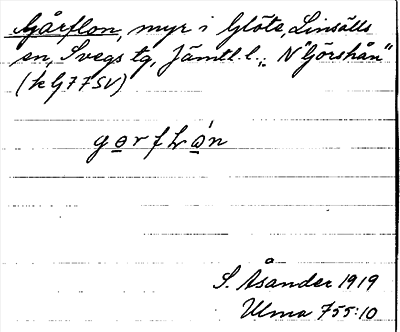 Gjårflon, myr i Glöte, Linsälls
sn, Svegs tg, Jämtl. l.; N "Görshån"
(k G77SV)
gɵrfLån
S. Åsander 1919
Ulma 755:10